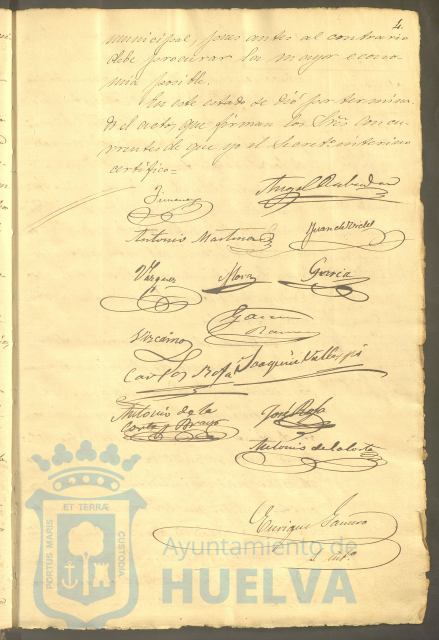 4.
municipal, pues antes al contrario
debe procurar la mayor econo
mia posible.
En este estado se dió por termina
do el acto, que firman los Sres concu
rrentes de que yo el Secreto interino
certifico=
Jimenez
Angel
Antonio Martinez
Juan de
Vazquez
Mora
García
García
Ramos
Vizcaino
Carlos Rofa
Joaquin Vallespi
Antonio de la
Corte y Bravo
José
Antonio de la Corte
Enrique
PORTUS MARIS ET TERRÆ CUSTODIA
Ayuntamiento de
HUELVA